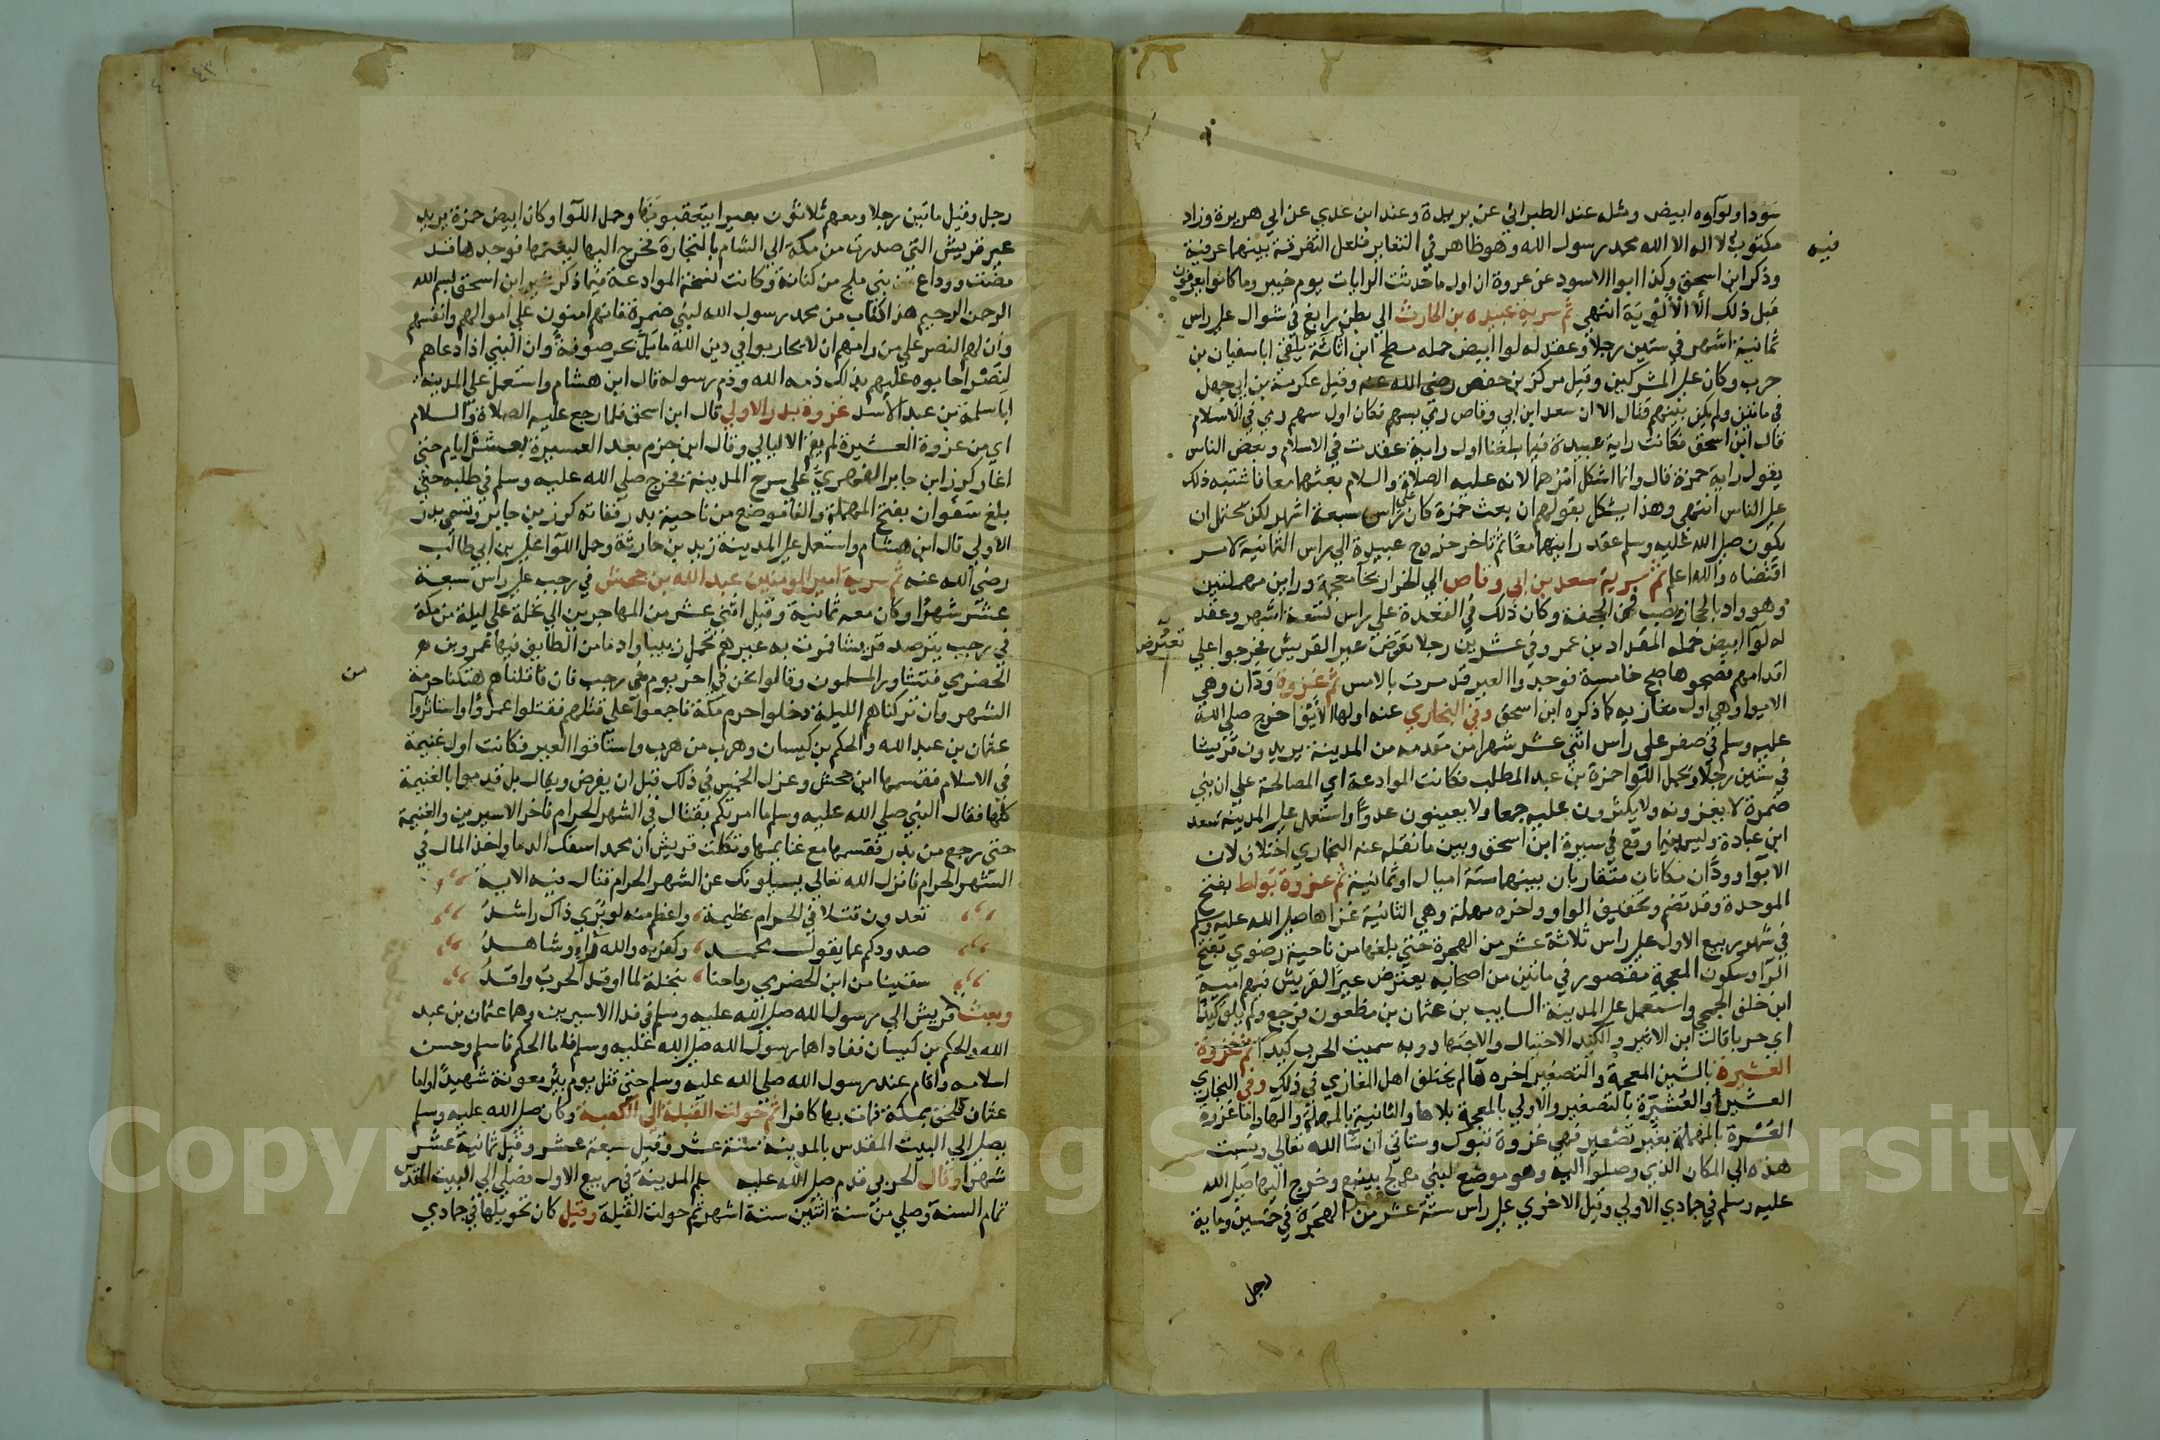 سودا ولوآوه ابيض ومثله عند الطبراني عن بريدة وعند ابن عدي عن ابي هريرة وزاد
فيه
مكتوب لا اله الا الله محمد رسول الله وهو ظاهر في التغاير فلعل التفرقة بينهما عرفية
وذكر ابن اسحق وكذا ابوا الاسود عن عروة ان اول ما حدثت الرايات يوم خيبر وما كانوا يعرفون
قبل ذلك الا الالوية انتهي ثم سرية عبيده بن الحارث الي بطن رابغ في شوال علي راس
ثمانية اشهر في ستين رجلا وعقد له لوا ابيض حمله مسطح ابن اثاثة يلقي ابا سفيان بن
حرب وكان علي المشركين وقيل مكرز بن حفص رضي الله عنه وقيل عكرمة بن ابي جهل
في مائتين ولم يكن بينهم قتال الا ان سعد ابن ابي وقاص رمي بسهم فكان اول سهم رمي في الاسلام
قال ابن اسحق فكانت راية عبيدة فيما بلغنا اول راية عقدت في الاسلام وبعض الناس
يقول راية حمزة قال وانما اشكل امرهما لانه عليه الصلاة والسلام بعثهما معا فاشتبه ذلك
علي الناس انتهي وهذا يشكل بقولهم ان بعث حمزة كان علي راس سبعة اشهر لكن يحتمل ان
يكون صلي الله عليه وسلم عقد رايتهما معا ثم تاخر خروج عبيدة الي راس الثمانية لامر
اقتضاه والله اعلم ثم سرية سعد بن ابي وقاص الي الخرار بخا معجمة ورايين مهملتين
وهو واد بالحجاز يصب في الجحفة وكان ذلك في القعدة علي راس تسعة اشهر وعقد
له لوآ ابيض حمله المقداد بن عمرو في عشرين رجلا يعترض عير القريش فخرجوا علي
تعترض
اقدامهم فصبحوها صبح خامسة فوجدوا العير قد مرت بالامس ثم غزوة ودان وهي
الابوا وهي اول مغازيه كما ذكره ابن اسحق وفي البخاري عنه اولها الابوا خرج صلي الله
عليه وسلم في صفر علي راس اثني عشر شهرا من مقدمه من المدينة يريدون قريشا
في ستين رجلا وحمل اللوا حمزة بن عبد المطلب فكانت الموادعة اي المصالحة علي ان بني
ضمرة لا يغزونه ولا يكثرون عليه جمعا ولا يعينون عدوا واستعمل علي المدينة سعد
ابن عبادة وليس بين ما وقع في سيرة ابن اسحق وبين ما نقله عنه البخاري اختلاف لان
الابوآ وودان مكانان متقاربان بينهما ستة اميال او ثمانية ثم غزوة بواط بفتح
الموحدة وقد تضم وتخفيف الواو واخره مهملة وهي الثانية غزاها صلي الله عليه وسلم
في شهر ربيع الاول علي راس ثلاثة عشر من الهجرة حتي بلغها من ناحية رضوي بفتح
الرآ وسكون المعجمة مقصور في مائتين من اصحابه يعترض عيرا لقريش فيهم امية
ابن خلف الجمحي واستعمل علي المدينة السايب بن عثمان بن مظعون فرجع ولم يلق كيدا
اي حربا قال ابن الاثير والكيد الاحتيال والاجتهاد وبه سميت الحرب كيدا ثم غزوة
العشيرة بالشين المعجمة والتصغير اخره ها لم يختلف اهل المغازي في ذلك وفي البخاري
العشيرا والعشيرة بالتصغير والاولي بالمعجمة بلا ها والثانية بالمهملة والها واما غزوة
العسرة بالمهملة بغير تصغير فهي غزوة تبوك وستاتي ان شا الله تعالي ونسبت
هذه الي المكان الذي وصلوا اليه وهو موضع لبني مدلج بينبع وخرج اليها صلي الله
عليه وسلم في جمادي الاولي وقيل الاخري علي راس ستة عشر من الهجرة في خمسين وماية
رجل
٤٣
رجل وقيل مائتين رجلا ومعهم ثلاثون بعيرا يتعقبونها وحمل اللوآ وكان ابيض حمزة يريد
عير قريش التي صدرت من مكة الي الشام بالتجارة فخرج اليها ليغنمها فوجدها قد
مضت ووداع بني مدلج من كنانة وكانت نسخة الموادعة فيما ذكر غير ابن اسحق بسم الله
الرحمن الرحيم هذا كتاب من محمد رسول الله لبني ضمرة فانهم امنون علي اموالهم وانفسهم
وان لهم النصر علي من رامهم ان لا يحاربوا في دين الله ما بل بحر صوفة وان النبي اذا دعاهم
لنصر اجابوه عليهم بذلك ذمه الله وذم رسوله قال ابن هشام واستعمل علي المدينة
ابا سلمة بن عبد الاسد غزوة بدر الاولي قال ابن اسحق فلما رجع عليه الصلاة والسلام
اي من غزوة العشيرة لم يقم الا ليالي وقال ابن حزم بعد العسيرة بعشرة ايام حتي
اغار كرز ابن جابر الفهري علي سرح المدينة فخرج صلي الله عليه وسلم في طلبه حتي
بلغ سفوان بفتح المهملة والفا موضع من ناحية بدر ففاته كرز بن جابر وتسمي بدر
الاولي قال ابن هشام واستعمل علي المدينة زيد بن حارثة وحمل اللوآ علي بن ابي طالب
رضي الله عنه ثم سرية امير المومنين عبد الله بن جحش في رجب علي راس سبعة
عشر شهرا وكان معه ثمانية وقيل اثني عشر من المهاجرين الي نخلة علي ليلة من مكة
في رجب يترصد قريشا فمرت به عيرهم تحمل زبيبا وادما من الطايف فيها عمرو بن
من
الحضرمي فتشاور المسلمون وقالوا نحن في اخر يوم من رجب فان قاتلناهم هتكنا حرمة
الشهر وان تركناهم الليلة دخلوا حرم مكة فاجمعوا علي قتلهم فقتلوا عمرا واستاثروا
عثمان بن عبد الله والحكم بن كيسان وهرب من هرب واستاقوا العير فكانت اول غنيمة
في الاسلام فقسمها ابن جحش وعزل الخمس في ذلك قبل ان يفرض ويقال بل قدموا بالغنيمة
كلها فقال النبي صلي الله عليه وسلم ما امرتكم بقتال في الشهر الحرام فاخر الاسيرين والغنيمة
حتي رجع من بدر فقسمها مع غنايمها وتكلمت قريش ان محمد اسفك الدما واخذ المال في
الشهر الحرام فانزل الله تعالي يسيلونك عن الشهر الحرام قتال فيه الاية
تعدون قتلا في الحرام عظيمة واعظم منه لو يري ذاك راشد
صدودكم عما يقول محمد وكفر به والله رآء وشاهد
سقينا من ابن الحضرمي رماحنا بنخلة لما اوقد الحرب واقد
وبعث قريش الي رسول الله صلي الله عليه وسلم في فدا الاسيرين وهما عثمان بن عبد
الله والحكم بن كيسان ففاداهما رسول الله صلي الله عليه وسلم فاما الحكم فاسلم وحسن
اسلامه واقام عند رسول الله صلي الله عليه وسلم حتي قتل يوم بئر معونة شهيدا واما
عثمان فلحق بمكة فمات بها كافرا ثم حولت القبلة الي الكعبة وكان صلي الله عليه وسلم
يصلي الي البيت المقدس بالمدينة ستة عشر وقيل سبعة عشر وقيل ثمانية عشر
شهرا وقال الحربي قدم صلي الله عليه وسلم المدينة في ربيع الاول فصلي الي البيت المقدس
تمام السنة وصلي من سنة اثنتين ستة اشهر ثم حولت القبلة وقيل كان تحويلها في جمادي
Copyright © King Saud University